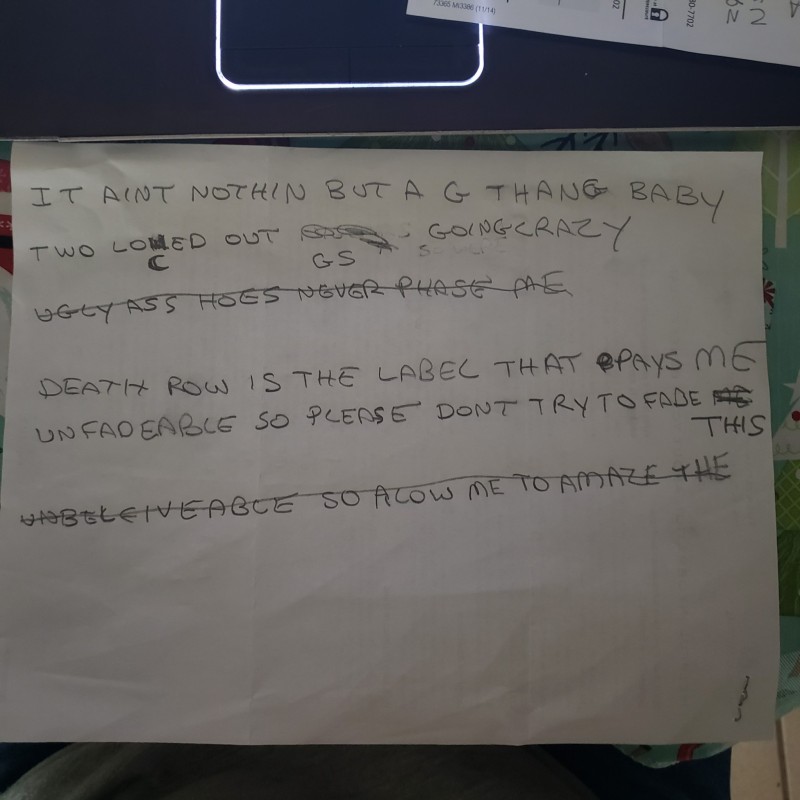 73365 MI3386 (11/14)
02
30-7702
IT AINT NOTHIN BUT A G THANG BABY
TWO LOCED OUT GOING CRAZY
GS
UGLY ASS HOES NEVER PHASE ME
DEATH ROW IS THE LABEL THAT PAYS ME
UNFADEABLE SO PLEASE DONT TRY TO FADE
THIS
UNBELEIVEABLE SO ALOW ME TO AMAZE THE